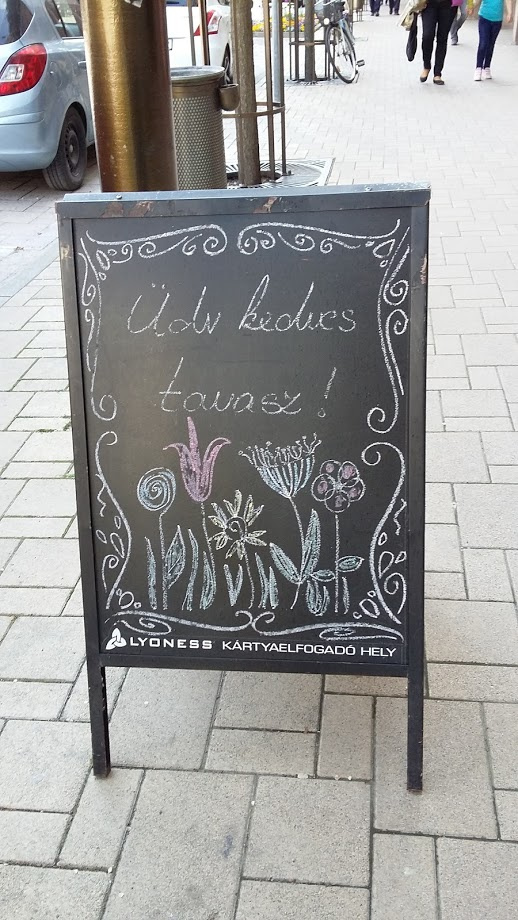 Üdv kedves
tavasz!
LYONESS KÁRTYAELFOGADÓ HELY